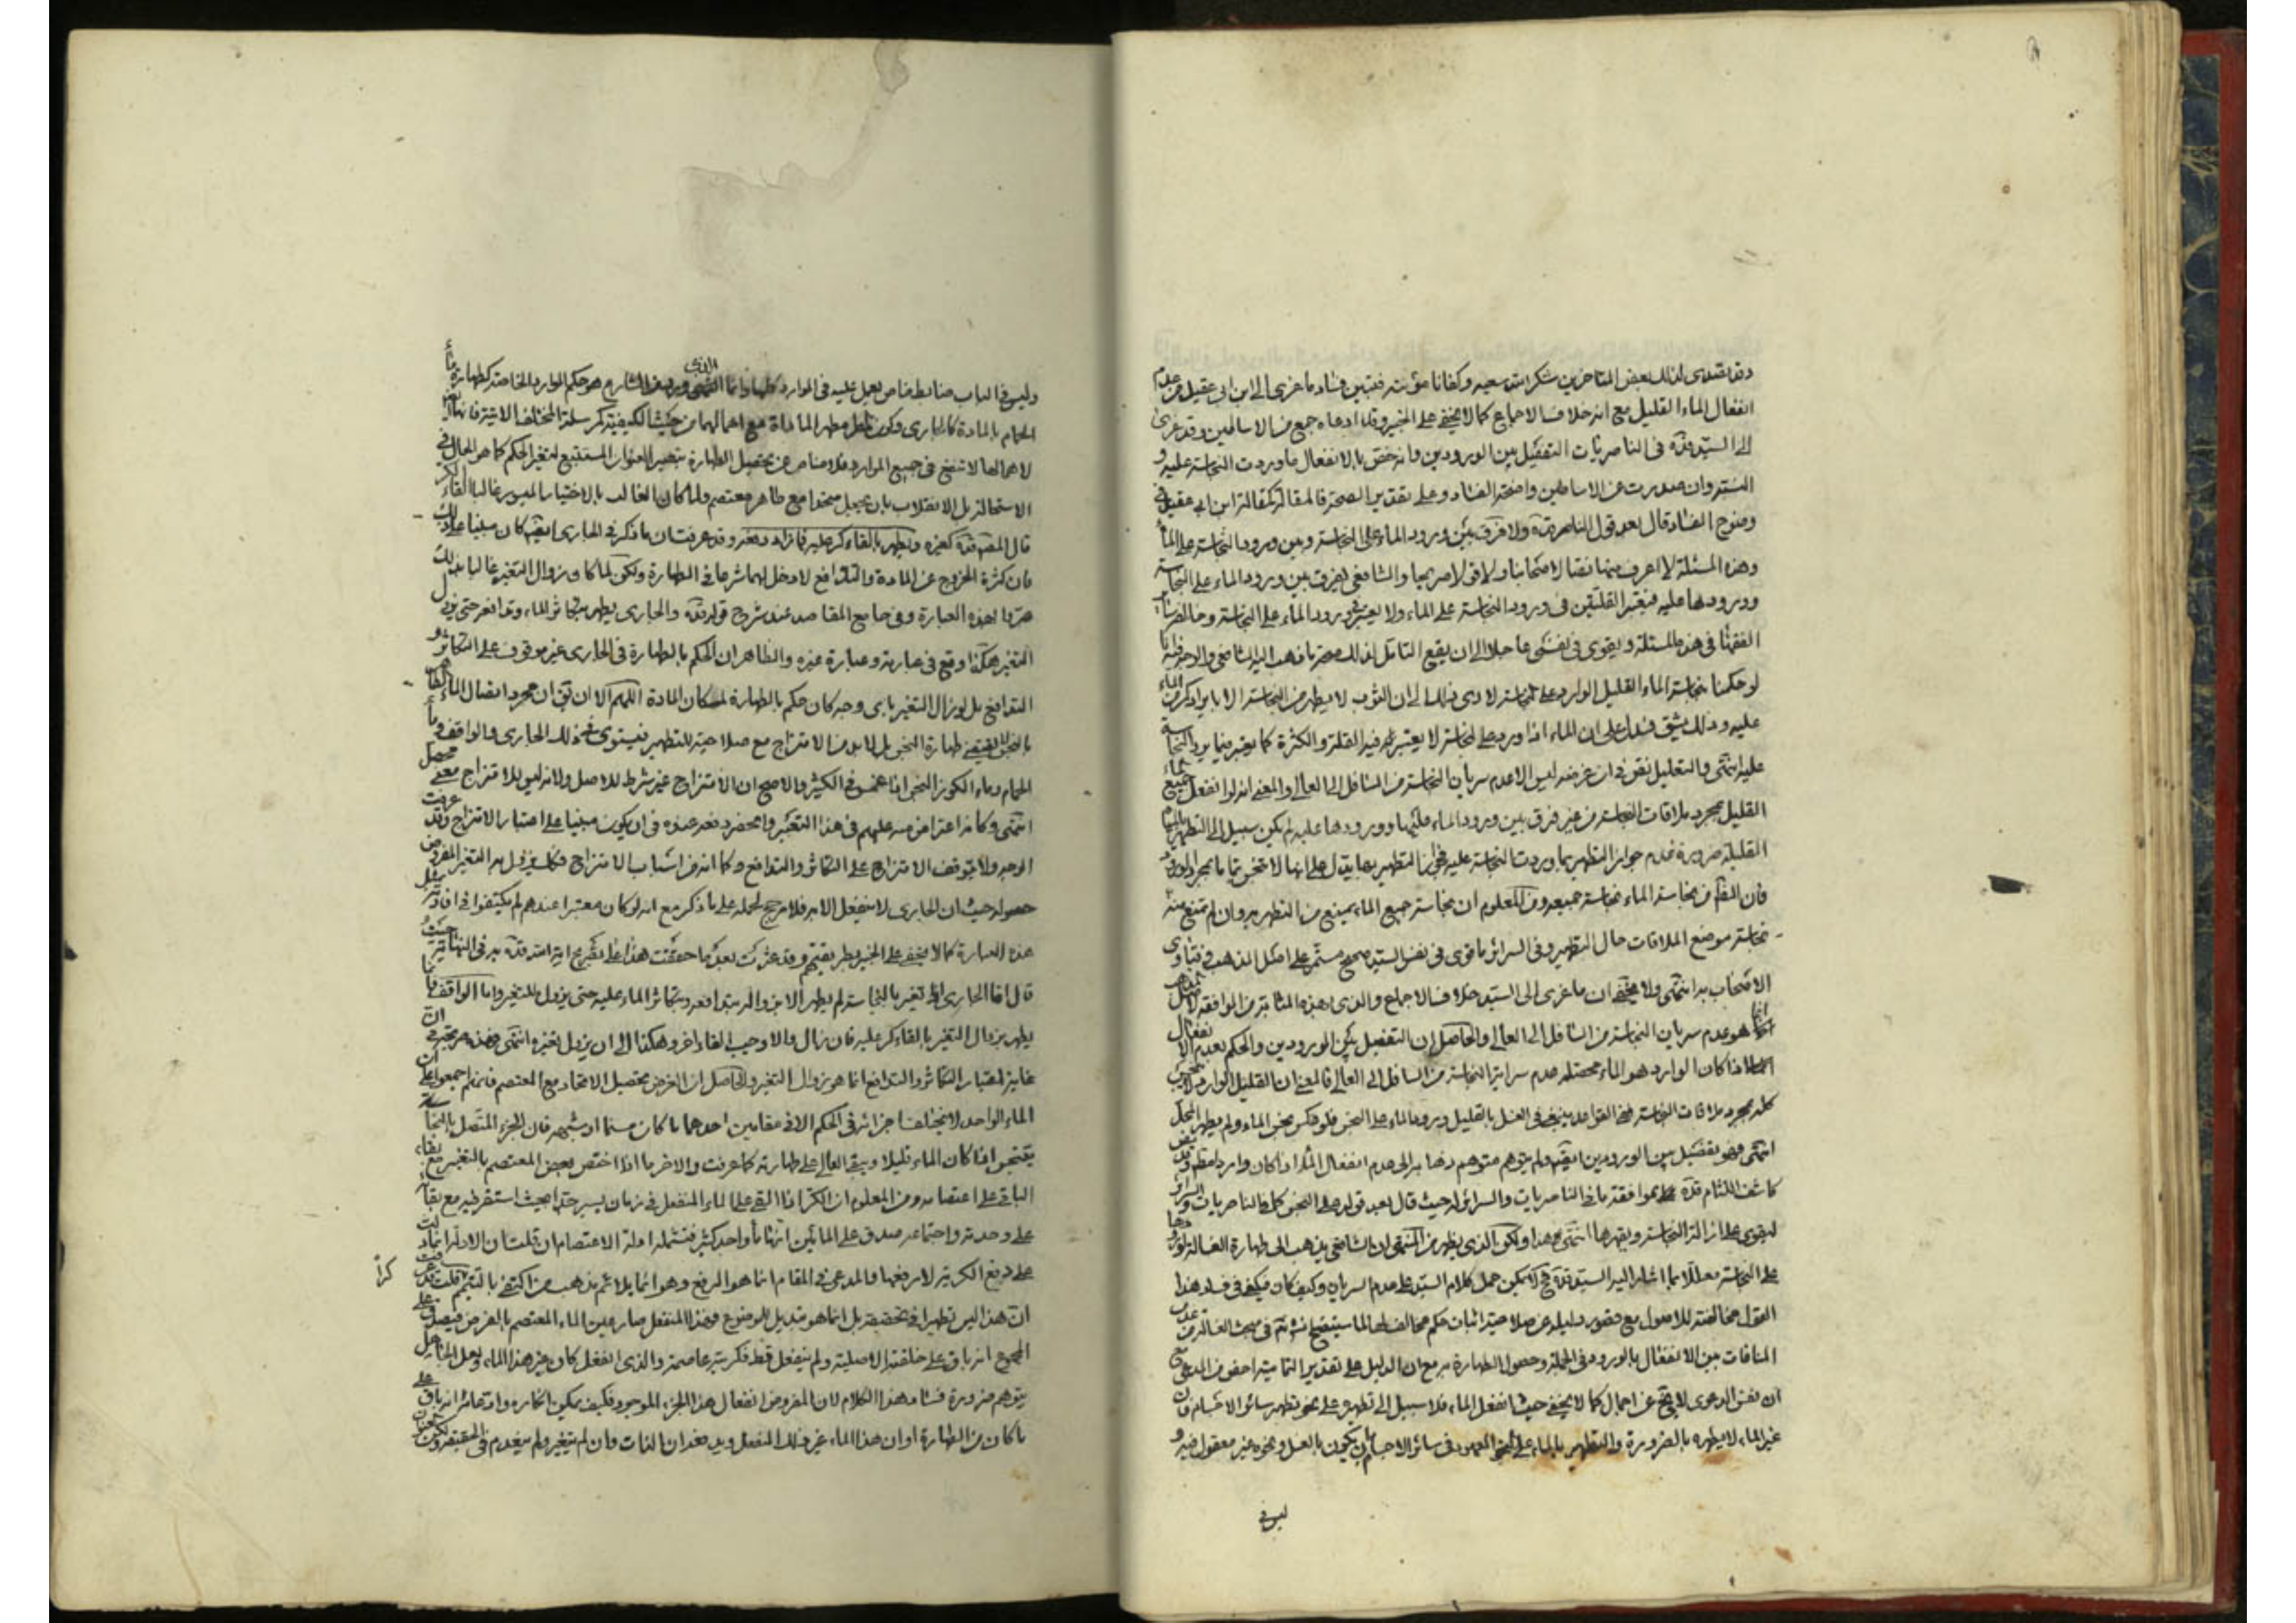 وقد تصدى لذلك بعض المتاخرين شكر الله سعيه وكفانا مؤنته فتبين فساد ما عزى الى ابن ابي عقيل من عدم
انفعال الماء القليل مع انه خلاف الاجماع كما لا يخفى على الخبير وقد ادعاه جمع من الاساطين وقد عزى
الى السيد قده في الناصريات التفصيل بين الورودين وانه خص بالانفعال ما وردت النجاسة عليه و
النسبة وان صدرت عن الاساطين واضحة الفساد وعلى تقدير الصحة فالمقالة كمقالة ابن ابي عقيل في
وضوح الفساد قال بعد قول الناصر قده ولا فرق بين ورود الماء على النجاسة وبين ورود النجاسة على الماء
وهذه المسئلة لا اعرف فيها نصا لاصحابنا ولا قولا صريحا والشافعي يفرق بين ورود الماء على النجاسة
وورودها عليه فيعتبر القلتين في ورود النجاسة على الماء ولا يعتبر في ورود الماء على النجاسة وخالفه سائر
الفقهاء في هذه المسئلة ويقوى في نفسي عاجلا الى ان يقع التامل لذلك صحة ما ذهب اليه الشافعي والوجه فيه انا
لو حكمنا بنجاسة الماء القليل الوارد على النجاسة لادى ذلك الى ان الثوب لا يطهر من النجاسة الا بايراد كر من الماء
عليه وذلك يشق فدل على ان الماء اذا ورد على النجاسة لا يعتبر فيه القلة والكثرة كما يعتبر فيما يرد النجاسة
عليه انتهى والتعليل نص في ان غرضه ليس الا عدم سريان النجاسة من السافل الى العالي والمعنى انه لو انفعل جميع الماء
القليل بمجرد ملاقات النجاسة من غير فرق بين ورود الماء عليها وورودها عليه لم يكن سبيل الى التطهير بالمياه
القليلة ضرورة عدم جواز التطهير بما وردت النجاسة عليه فجواز التطهير بها يدل على انها لا تنجس بتمامها بمجرد الورود
فان الظاهر من نجاسة الماء نجاسة جميعه ومن المعلوم ان نجاسة جميع الماء يمنع من التطهير به وان لم تمنع منه
نجاسة موضع الملاقات حال التطهير وفي السرائر ما قوى في نفس السيد صحيح مستمر على اصل المذهب وفتاوى
الاصحاب به انتهى ولا يخفى ان ما عزى الى السيد خلاف الاجماع والذي بهذه المثابة من الموافقة لاصل المذهب
انما هو عدم سريان النجاسة من السافل الى العالي والحاصل ان التفصيل بين الورودين والحكم بعدم الانفعال
اذا كان الوارد هو الماء محصله عدم سراية النجاسة من السافل الى العالي فالمعنى ان القليل الوارد لا ينجس
كله بمجرد ملاقات النجاسة
انتهى وهو تفصيل بين الورودين ايضا ولم يتوهم متوهم ذهابه الى عدم انفعال الماء اذا كان واردا
كاشف اللثام قده بموافقة ما في الناصريات والسرائر له حيث قال بعد قوله على النجس كما في الناصريات والسرائر
ليقوى على ازالة النجاسة ويقهرها انتهى هذا ولكن الذي يظهر من المنتهى ان الشافعي يذهب الى طهارة الغسالة
على النجاسة معللا بما اشار اليه السيد قده فلا يمكن حمل كلام السيد على عدم السريان وكيف كان فيكفي في فساد هذا
القول مخالفته للاصول مع قصور دليله عن صلاحية اثبات حكم مخالف لها لما سيتضح انشاء الله في مبحث الغسالة من عدم
المنافات بين الانفعال بالورود في الجملة وحصول الطهارة به مع ان الدليل على تقدير التمامية اخص من المدعى مع
ان نفس الدعوى لا تخ عن اجمال كما لا يخفى حيث انفعل الماء فلا سبيل الى تطهيره على نحو تطهير سائر الاجسام فان
غير الماء لا يطهره بالضرورة والتطهير بالماء على النحو المعهود في سائر الاجسام بان يكون بالغسل ونحوه غير معقول فيه و
ليس في
وليس في الباب ضابط خاص يعول عليه في الموارد وانما الذي ورد من الشارع هو حكم الموارد الخاصة كطهارة ماء
الحمام بالمادة كالجاري وكون المطر مطهرا
لاهمالها لا تنفع في جميع الموارد فلا مناص عن تحصيل الطهارة بتغيير العنوان المستتبع لتغير الحكم كما هو الحال في
الاستحالة بل الانقلاب بان يجعل متحدا مع طاهر معتصم ولما كان الغالب بالاختيار الميسور غالبا القاء الكر
قال المص قده كغيره ويطهر بالقاء كر عليه فما زاد دفعة وقد عرفت ان ما ذكر في الجاري ايضا كان مبنيا على ذلك
فان كثرة الخروج عن المادة والتدافع لا دخل لهما شرعا في الطهارة ولكن لما كان زوال التغير غالبا بذلك
عبروا بهذه العبارة وفي جامع المقاصد عند شرح قوله قده والجاري يطهر بتكاثر الماء وتدافعه حتى يزول
التغير هكذا وقع في عبارته وعبارة غيره والظاهر ان الحكم بالطهارة في الجاري غير موقوف على التكاثر و
التدافع بل لو زال التغير باى وجه كان حكم بالطهارة لمكان المادة اللهم الا ان يق ان مجرد اتصال الماء الطاهر
بالنجس لا يقتضي طهارة النجس بل لا بد من الامتزاج مع صلاحيته للتطهير فيستوى في ذلك الجاري والواقف وماء
الحمام وماء الكوز النجس اذا غمس في الكثير والاصح ان الامتزاج غير شرط للاصل ولانه ليس للامتزاج معنى محصل
انتهى وكانه اعتراض منه عليهم في هذا التعبير وانحصر دفعه عنده في ان يكون مبنيا على اعتبار الامتزاج وقد عرفت
الوجه ولا يتوقف الامتزاج على التكاثر والتدافع وكما انه من اسباب الامتزاج فكك يزول به التغير المفروض
حصوله حيث ان الجاري لا ينفعل الا به فلا مرجح لحمله على ما ذكر مع انه لو كان معتبرا عندهم لم يكتفوا في افادته بمثل
هذه العبارة كما لا يخفى على الخبير بطريقتهم وقد عثرت بعد ما حققت هذا على تصريح اية الله قده به في النهاية حيث
قال اما الجاري اذا تغير بالنجاسة لم يطهر الا بزواله بتدافعه وبتكاثر الماء عليه حتى يزول التغير واما الواقف فانما
يطهر بزوال التغير بالقاء كر عليه فان زال والا وجب القاء اخر وهكذا الى ان يزول تغيره انتهى فهذه صريحة في ان
غاية اعتبار التكاثر والتدافع انما هو زوال التغير والحاصل ان الغرض تحصيل الاتحاد مع المعتصم فانهم اجمعوا على ان
الماء الواحد لا يختلف اجزائه في الحكم الا في مقامين احدهما ما كان مسنما او شبهه فان الجزء المتصل بالنجاسة
يتنجس اذا كان الماء قليلا ويبقى العالي على طهارته كما عرفت والاخر ما اذا اختص بعض المعتصم بالتغير مع بقاء
الباقي على اعتصامه ومن المعلوم ان الكر اذا القي على الماء المنفعل في زمان يسير جدا بحيث استقر فيه مع بقائه
على وحدته واجتماعه صدق على المائين انهما ماء واحد كثير فتشمله ادلة الاعتصام ان قلت ان الادلة انما دلت
على دفع الكرية لا رفعها والمدعى في المقام انما هو الرفع وهو انما يلائم مذهب من اكتفى بالتتميم كرا قلت قد عرفت
ان هذا ليس تطهيرا في الحقيقة بل انما هو تبديل للموضوع فهذا المنفعل صار عين الماء المعتصم بالفرض فيصدق على
المجموع انه باق على خلقته الاصلية ولم ينفعل قط فكريته عاصمة والذي انفعل كان غير هذا الماء ولعل الجاهل
يتوهم ضرورة فساد هذا الكلام لان المفروض انفعال هذا الجزء الموجود فكيف يمكن انكاره وادعاء انه باق على
ما كان من الطهارة او ان هذا الماء غير ذلك المنفعل ويدفعه ان الذات وان لم يتغير ولم ينعدم في الحقيقة ولكن العنوان